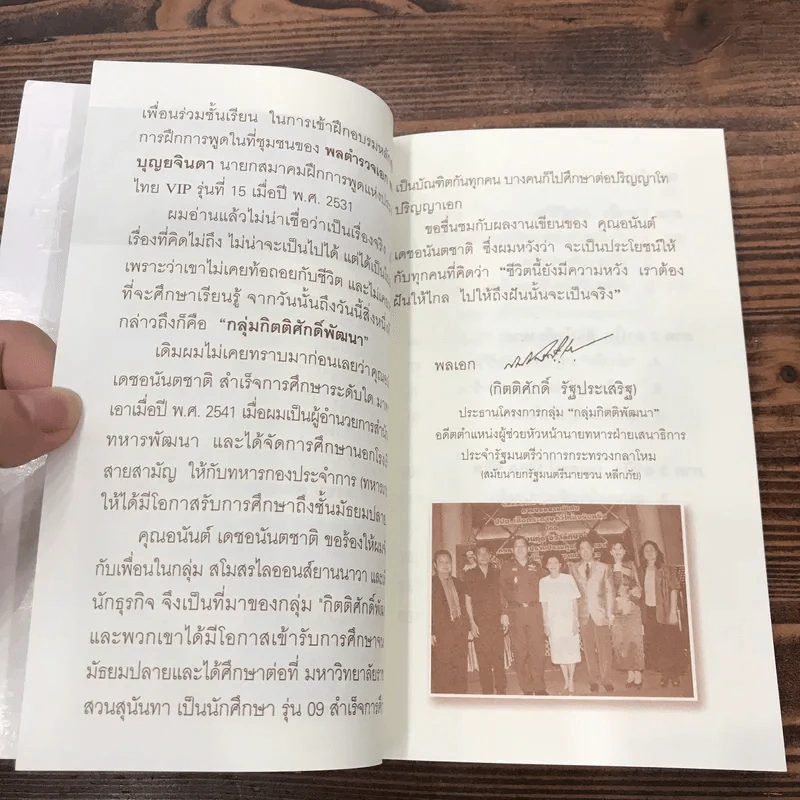 เพื่อนร่วมชั้นเรียน ในการเข้าฝึกอบรมหลัก
การฝึกการพูดในที่ชุมชนของ พลตำรวจเอก
บุญยจินดา นายกสมาคมฝึกการพูดแห่งประ
ไทย VIP รุ่นที่ 15 เมื่อปี พ.ศ. 2531
ผมอ่านแล้วไม่น่าเชื่อว่าเป็นเรื่องจริง
เรื่องที่คิดไม่ถึง ไม่น่าจะเป็นไปได้ แต่ได้เป็น
เพราะว่าเขาไม่เคยท้อถอยกับชีวิต และไม่เคย
ที่จะศึกษาเรียนรู้ จากวันนั้นถึงวันนี้สิ่งหนึ่ง
กล่าวถึงก็คือ "กลุ่มกิตติศักดิ์พัฒนา"
เดิมผมไม่เคยทราบมาก่อนเลยว่าคุณ
เดชอนันตชาติ สำเร็จการศึกษาระดับใด มา
เอาเมื่อปี พ.ศ. 2541 เมื่อผมเป็นผู้อำนวยการสำนัก
ทหารพัฒนา และได้จัดการศึกษานอกโรง
สายสามัญ ให้กับทหารกองประจำการ (ทหาร
ให้ได้มีโอกาสรับการศึกษาถึงชั้นมัธยมปลาย
คุณอนันต์ เดชอนันตชาติ ขอร้องให้ผม
กับเพื่อนในกลุ่ม สโมสรไลออนส์ยานนาวา และ
นักธุรกิจ จึงเป็นที่มาของกลุ่ม "กิตติศักดิ์พัฒ
และพวกเขาได้มีโอกาสเข้ารับการศึกษาจน
มัธยมปลายและได้ศึกษาต่อที่ มหาวิทยาลัยรา
สวนสุนันทา เป็นนักศึกษา รุ่น 09 สำเร็จการศึ
เป็นบัณฑิตกันทุกคน บางคนก็ไปศึกษาต่อปริญญาโท
ปริญญาเอก
ขอชื่นชมกับผลงานเขียนของ คุณอนันต์
เดชอนันตชาติ ซึ่งผมหวังว่า จะเป็นประโยชน์ให้
กับทุกคนที่คิดว่า "ชีวิตนี้ยังมีความหวัง เราต้อง
ฝันให้ไกล ไปให้ถึงฝันนั้นจะเป็นจริง"
พลเอก
(กิตติศักดิ์ รัฐประเสริฐ)
ประธานโครงการกลุ่ม "กลุ่มกิตติพัฒนา"
อดีตตำแหน่งผู้ช่วยหัวหน้านายทหารฝ่ายเสนาธิการ
ประจำรัฐมนตรีว่าการกระทรวงกลาโหม
(สมัยนายกรัฐมนตรีนายชวน หลีกภัย)